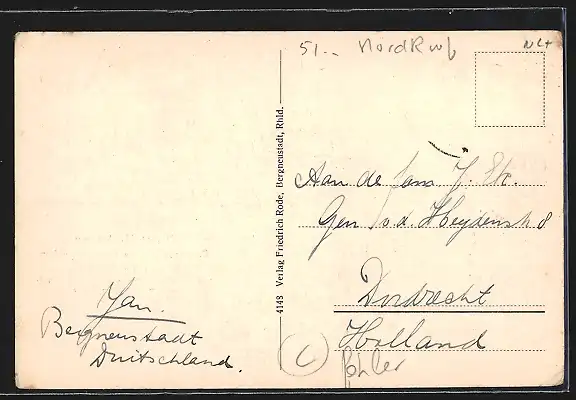 51.-
NLt
4148 Verlag Friedrich Rode, Bergneustadt, Rhld.
Aan de fam J.
Gen. v.d. Heydenstr 8
Dordrecht
Holland
Jan.
Bergneustadt
Duitschland.